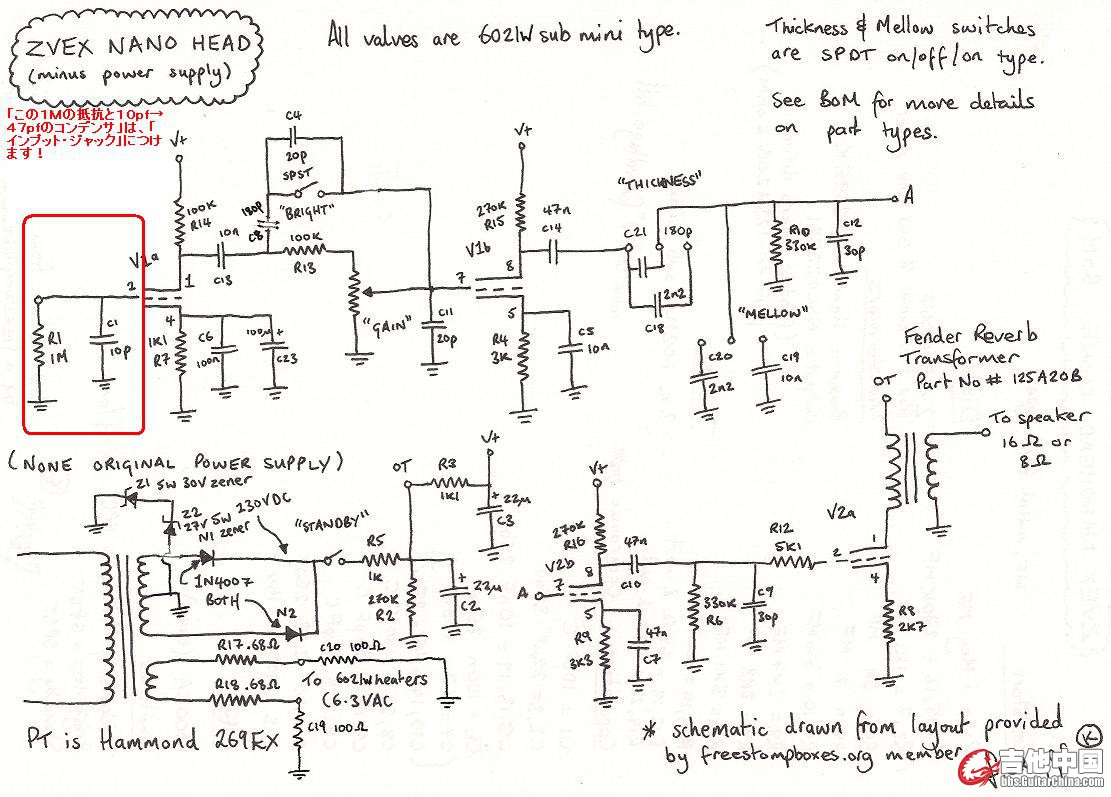 ZVEX NANO HEAD
(minus power supply)
All valves are 6021W sub mini type.
Thickness & Mellow switches
are SPDT on/off/on type.
See BOM for more details
on part types.
「この1Mの抵抗と10pf→
47pfのコンデンサ」は、「
インプット・ジャック」につけ
ます！
V+
100K
R14
V1a
2
1
4
R1
1M
C1
10p
1K1
R7
C6
100n
100μ
+
C23
10n
C13
C4
20p
SPST
"BRIGHT"
180p
C8
100K
R13
"GAIN"
C11
20p
V+
270K
R15
V1b
7
8
5
R4
3K
C5
10n
47n
C14
"THICKNESS"
C21
180p
2n2
C18
A
R10
330K
C12
30p
"MELLOW"
C20
2n2
C19
10n
Fender Reverb
Transformer
Part No# 125A20B
OT
To speaker
16Ω or
8Ω
(NONE ORIGINAL POWER SUPPLY)
Z1 5W 30V zener
Z2
27V 5W
zener
N1
230VDC
"STANDBY"
1N4007
BOTH
N2
R5
1K
OT
R3
1K1
V+
+
22μ
C3
270K
R2
+
22μ
C2
R17 .68Ω
C20 100Ω
R18 .68Ω
To 6021W heaters
(6.3VAC
C19 100Ω
PT is Hammond 269EX
V+
270K
R16
V2b
A
7
8
5
R9
3K3
47n
C7
47n
C10
330K
R6
C9
30p
R12
5K1
V2a
2
1
4
R8
2K7
* schematic drawn from layout provided
by freestompboxes.org member
K
吉他中国
bbs.GuitarChina.com